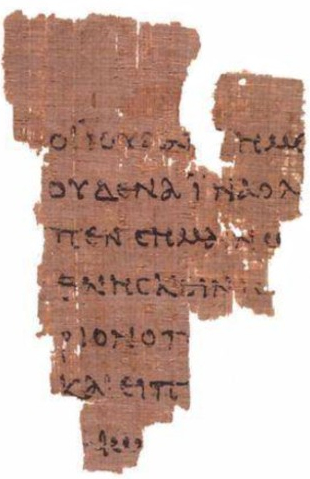 ΟΙ ΙΟΥΔΑΙ ΗΜΙ
ΟΥΔΕΝΑ ΪΝΑ Ο Λ
ΠΕΝ ϹΗΜΑΙΝΩ
ΘΝΗϹΚΕΙΝ
ΡΙΟΝ Ο Π
ΚΑΙ ΕΙΠ